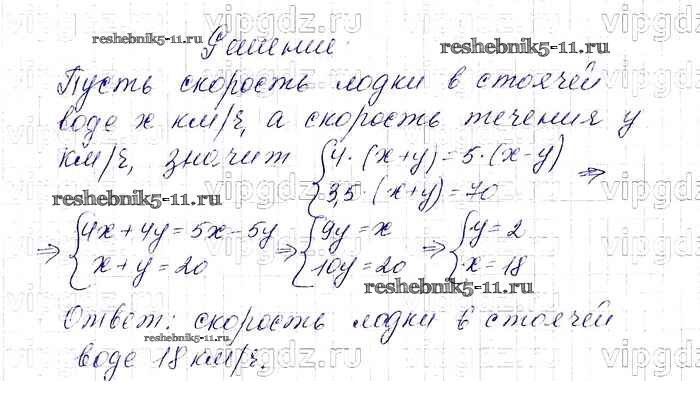 Решение:
reshebnik5-11.ru
reshebnik5-11.ru
Пусть скорость лодки в стоячей
воде x км/ч, а скорость течения y
км/ч, значит { 4·(x+y)=5·(x-y)
3,5·(x+y)=70 ⇒
reshebnik5-11.ru
⇒ { 4x+4y=5x-5y ⇒ { 9y=x ⇒ { y=2
x+y=20 10y=20 x=18
reshebnik5-11.ru
Ответ: скорость лодки в стоячей
reshebnik5-11.ru
воде 18 км/ч.
vipgdz.ru